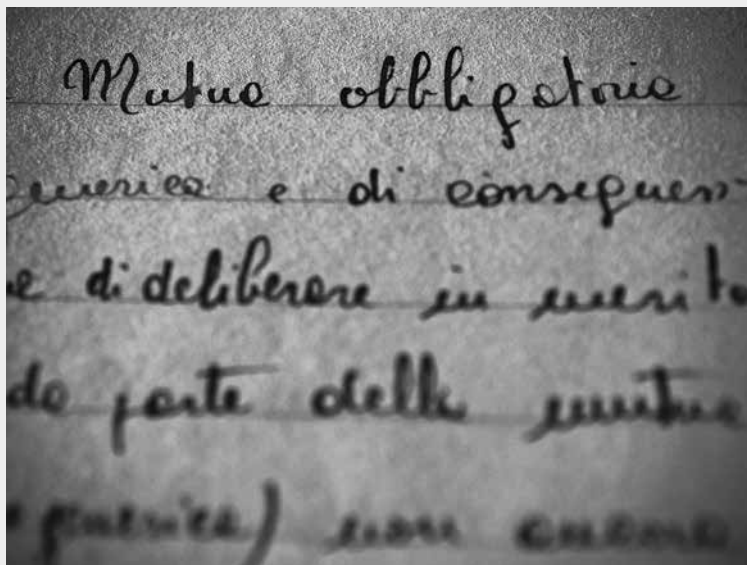 Mutua obbligatoria
generica e di conseguen
e di deliberare in merito
do parte della mutua
generica) non